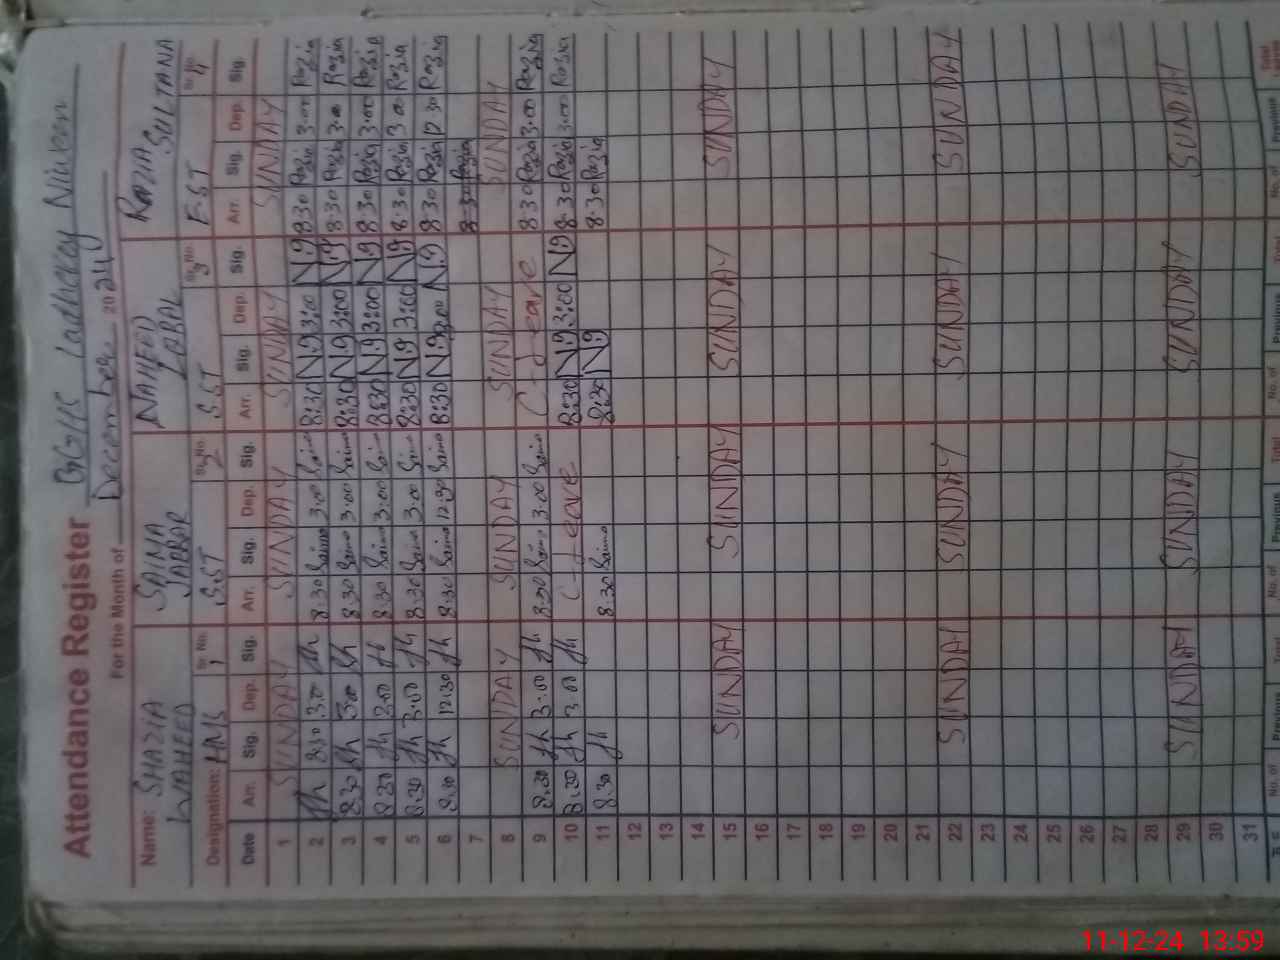 Attendance Register GGHS Ladhekey Niween
For the Month of December 2024
Name: SHAZIA WAHEED Sr No. 1 SAIMA JABBAR Sr No. 2 NAHEED IQBAL Sr No. 3 RAZIA SULTANA Sr No. 4
Designation: HMS S.ST S.ST EST
Date Arr. Sig. Dep. Sig. Arr. Sig. Dep. Sig. Arr. Sig. Dep. Sig. Arr. Sig. Dep. Sig.
1 SUNDAY SUNDAY SUNDAY SUNDAY
2 8:30 3.00 8.30 Saima 3.00 Saima 8:30 N.9 3:00 N.9 8.30 Razia 3.00 Razia
3 8.30 3.00 8.30 Saima 3.00 Saima 8:30 N.9 3:00 N.9 8.30 Razia 3.00 Razia
4 8.30 3.00 8.30 Saima 3.00 Saima 8:30 N.9 3:00 N.9 8.30 Razia 3.00 Razia
5 8.30 3.00 8.30 Saima 3.00 Saima 8:30 N.9 3:00 N.9 8.30 Razia 3.00 Razia
6 8.30 12.30 8.30 Saima 12.30 Saima 8:30 N.9 N.9 8.30 Razia 12.30 Razia
7 8.30 Razia
8 SUNDAY SUNDAY SUNDAY SUNDAY
9 8.30 3.00 8.30 Saima 3.00 Saima C-Leave 8.30 Razia 3.00 Razia
10 8.30 3.00 C-Leave 8:30 N.9 3:00 N.9 8.30 Razia 3.00 Razia
11 8.30 8.30 Saima 8:30 N.9 8.30 Razia
12
13
14
15 SUNDAY SUNDAY SUNDAY SUNDAY
16
17
18
19
20
21
22 SUNDAY SUNDAY SUNDAY SUNDAY
23
24
25
26
27
28
29 SUNDAY SUNDAY SUNDAY SUNDAY
30
31
11-12-24 13:59